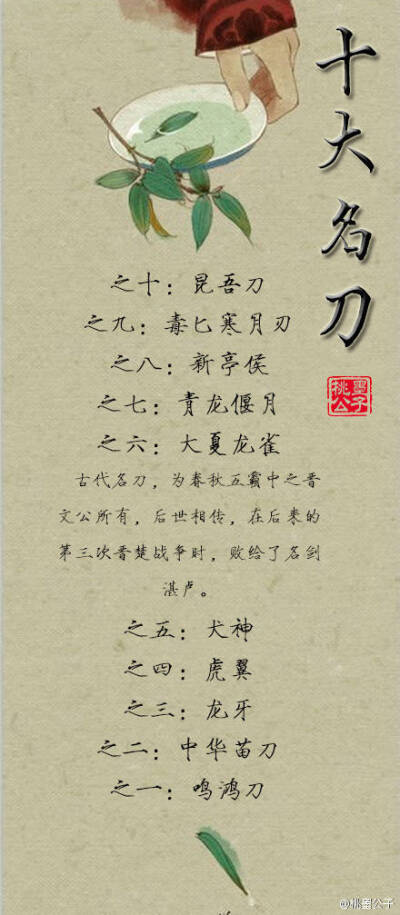 十大名刀
墨桃公子
之十：昆吾刀
之九：毒匕寒月刃
之八：新亭侯
之七：青龙偃月
之六：大夏龙雀
古代名刀，为春秋五霸中之晋
文公所有，后世相传，在后来的
第三次晋楚战争时，败给了名剑
湛卢。
之五：犬神
之四：虎翼
之三：龙牙
之二：中华苗刀
之一：鸣鸿刀
@桃墨公子